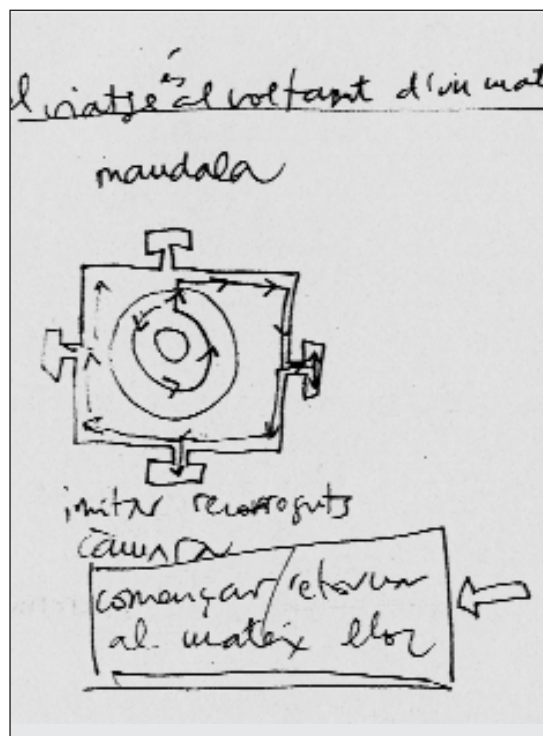 el viatge és al voltant d'un mat
mandala
imitar recorreguts
càmara
començar/retornar
al mateix lloc